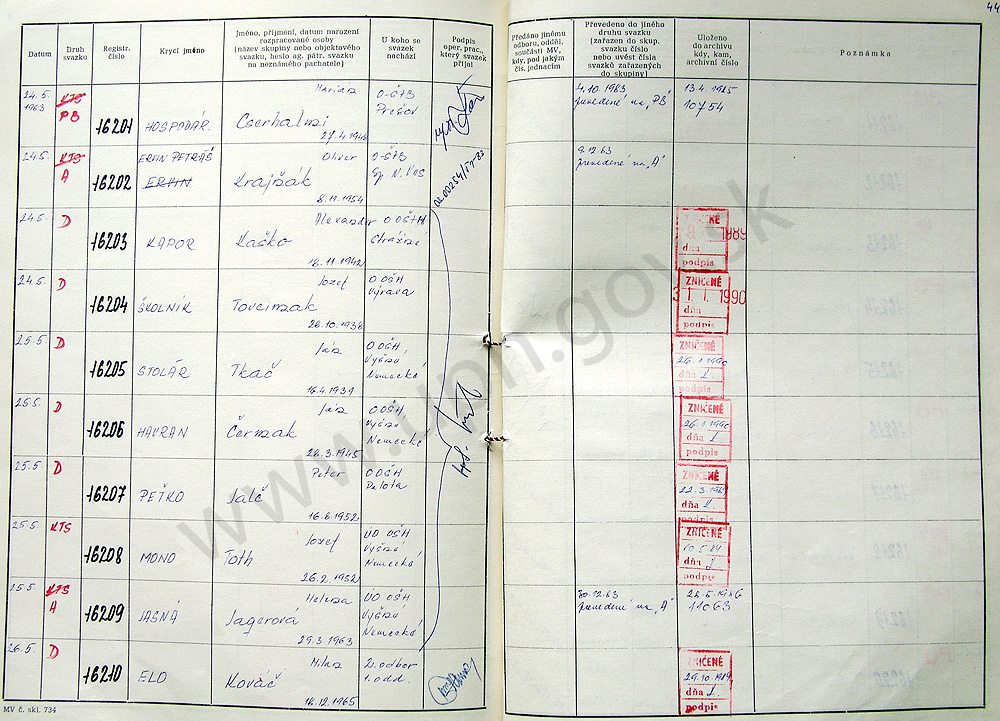 44
Datum
Druh
svazku
Registr.
číslo
Krycí jméno
Jméno, příjmení, datum narození
rozpracované osoby
(název skupiny nebo objektového
svazku, heslo ag. pátr. svazku
na neznámého pachatele)
U koho se
svazek
nachází
Podpis
oper. prac.,
který svazek
přijal
Předáno jinému
odboru, odděl.
součásti MV,
kdy, pod jakým
čís. jednacím
Převedeno do jiného
druhu svazku
(zařazen do skup.
svazku číslo
nebo uvést čísla
svazků zařazených
do skupiny)
Uloženo
do archívu
kdy, kam,
archivní číslo
Poznámka
24.5.
1983
KTS
PB
16201
HOSPODÁR
Marián
Cserhalmi
O-ŠTB
Prešov
4.10.1983
prevedené na „PB"
13.4.1985
10754
24.5.
KTS
A
16202
ERVIN PETRÁŠ
ERVIN
Oliver
Krajňák
8.11.1954
O-ŠTB
Sp. N. Ves
9.12.83
prevedené na „A"
24.5.
D
16203
KAPOR
Alexander
Kaško
18.11.1942
O OŠH
ZNIČENÉ
1989
dňa
podpis
24.5.
D
16204
ŠKOLNÍK
Jozef
26.10.1936
O OŠH
Výrava
ZNIČENÉ
31. 1. 1990
dňa
podpis
25.5.
D
16205
STOLÁR
Ján
Tkáč
16.4.1934
O OŠH
Vyšné
Nemecké
ZNIČENÉ
26.1.1990
dňa
podpis
25.5.
D
16206
HAVRAN
Ján
Čermak
28.3.1945
O OŠH
Vyšné
Nemecké
ZNIČENÉ
26.1.1990
dňa
podpis
25.5.
D
16207
PEŤKO
Peter
16.6.1952
O OŠH
ZNIČENÉ
dňa
podpis
25.5.
KTS
16208
MONO
Jozef
Toth
26.2.1952
ÚO OŠH
Vyšné
Nemecké
ZNIČENÉ
dňa
podpis
25.5.
KTS
A
16209
JASNÁ
Helena
Jagerová
29.3.1963
ÚO OŠH
Vyšné
Nemecké
30.12.83
prevedené na „A"
28.5.1986
11063
26.5.
D
16210
ELO
Milan
Kováč
18.12.1965
2. odbor
1. odd.
ZNIČENÉ
29.10.1989
dňa
podpis
MV č. skl. 734
www.upn.gov.sk